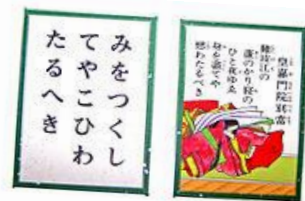 みをつくし
てやこひわ
たるへき
皇嘉門院別当
難波江の
蘆のかり寝の
ひと夜ゆゑ
身を盡てや
恋わたるべき